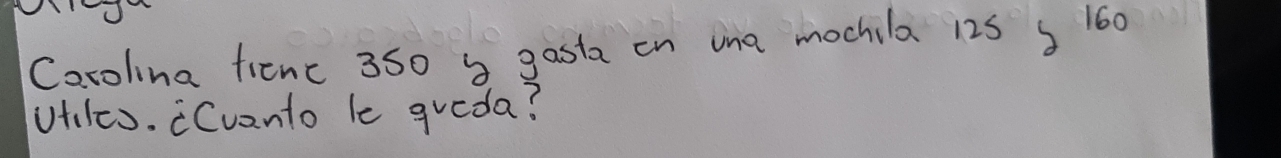 Ortega
Carolina tiene 350 y gasta en una mochila 125 y 160
Utiles. ¿Cuanto le queda?